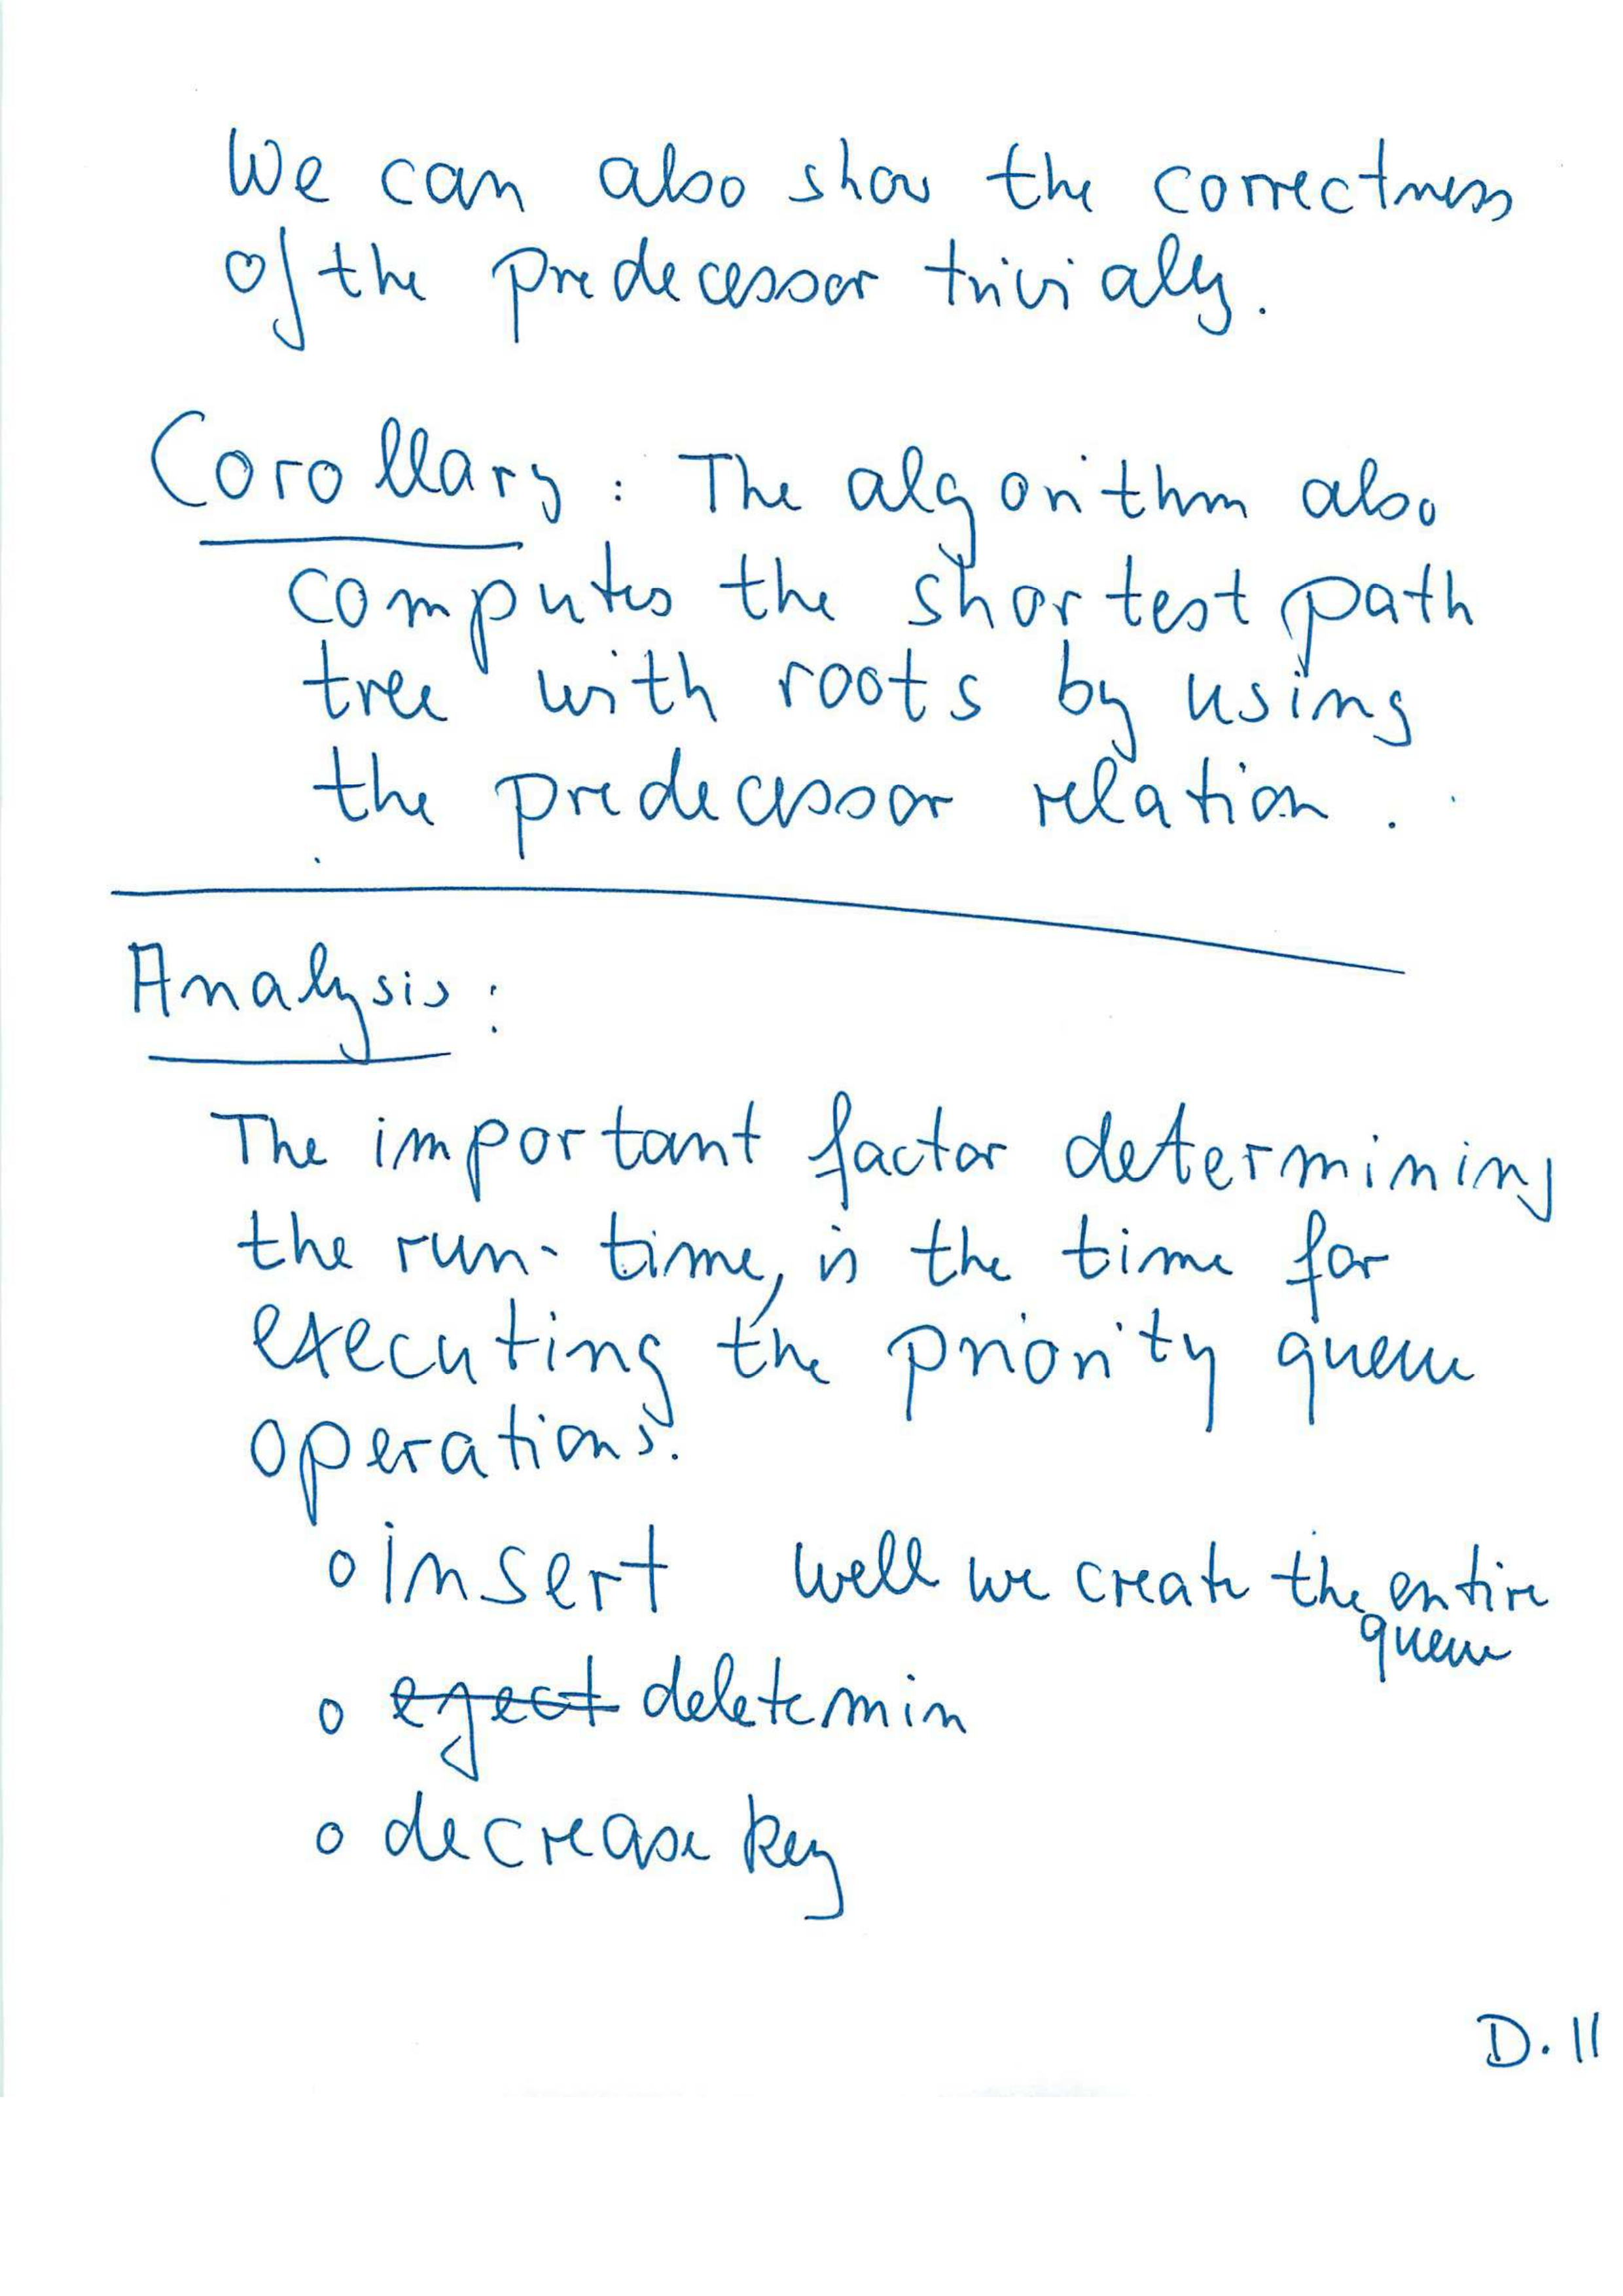 We can also show the correctness
of the predecessor trivially.
Corollary : The algorithm also
computes the shortest path
tree with root s by using
the predecessor relation.
Analysis :
The important factor determining
the run-time, is the time for
executing the priority queue
operations.
o insert well we create the entire
queue
o eject deletemin
o decrease key
D.11